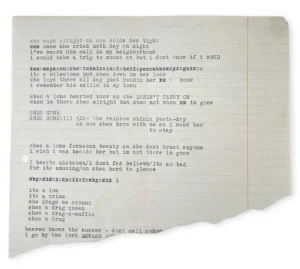 she says alright as one holds her tight
once she cried both day an night
i've heard him call in my neighborhood
i could take a trip to mount st but i dont know if i should
its a milestone but shes down on her luck
she lays there all day just readin her book
i remember his mailin in my town
shes a lone hearted mine an she DOESN'T CARRY ON
when im there shes alright but shes not when im gone
SHES GONE
SHES GONE!!!! like the rainbow shinin yester-day
an now shes here with me an i want her
to stay
shes a lone forsaken beauty an she dont trust anyone
i wish i was beside her but im not there im gone
2 hearts mistaken/i dont far believe/its so bad
for its amusing/an shes hard to please
its a low
its a crime
she drags me around
shes a drag queen
shes a drag-a-muffin
shes a drag
heaven knows the answer - dont call
i go by the lord